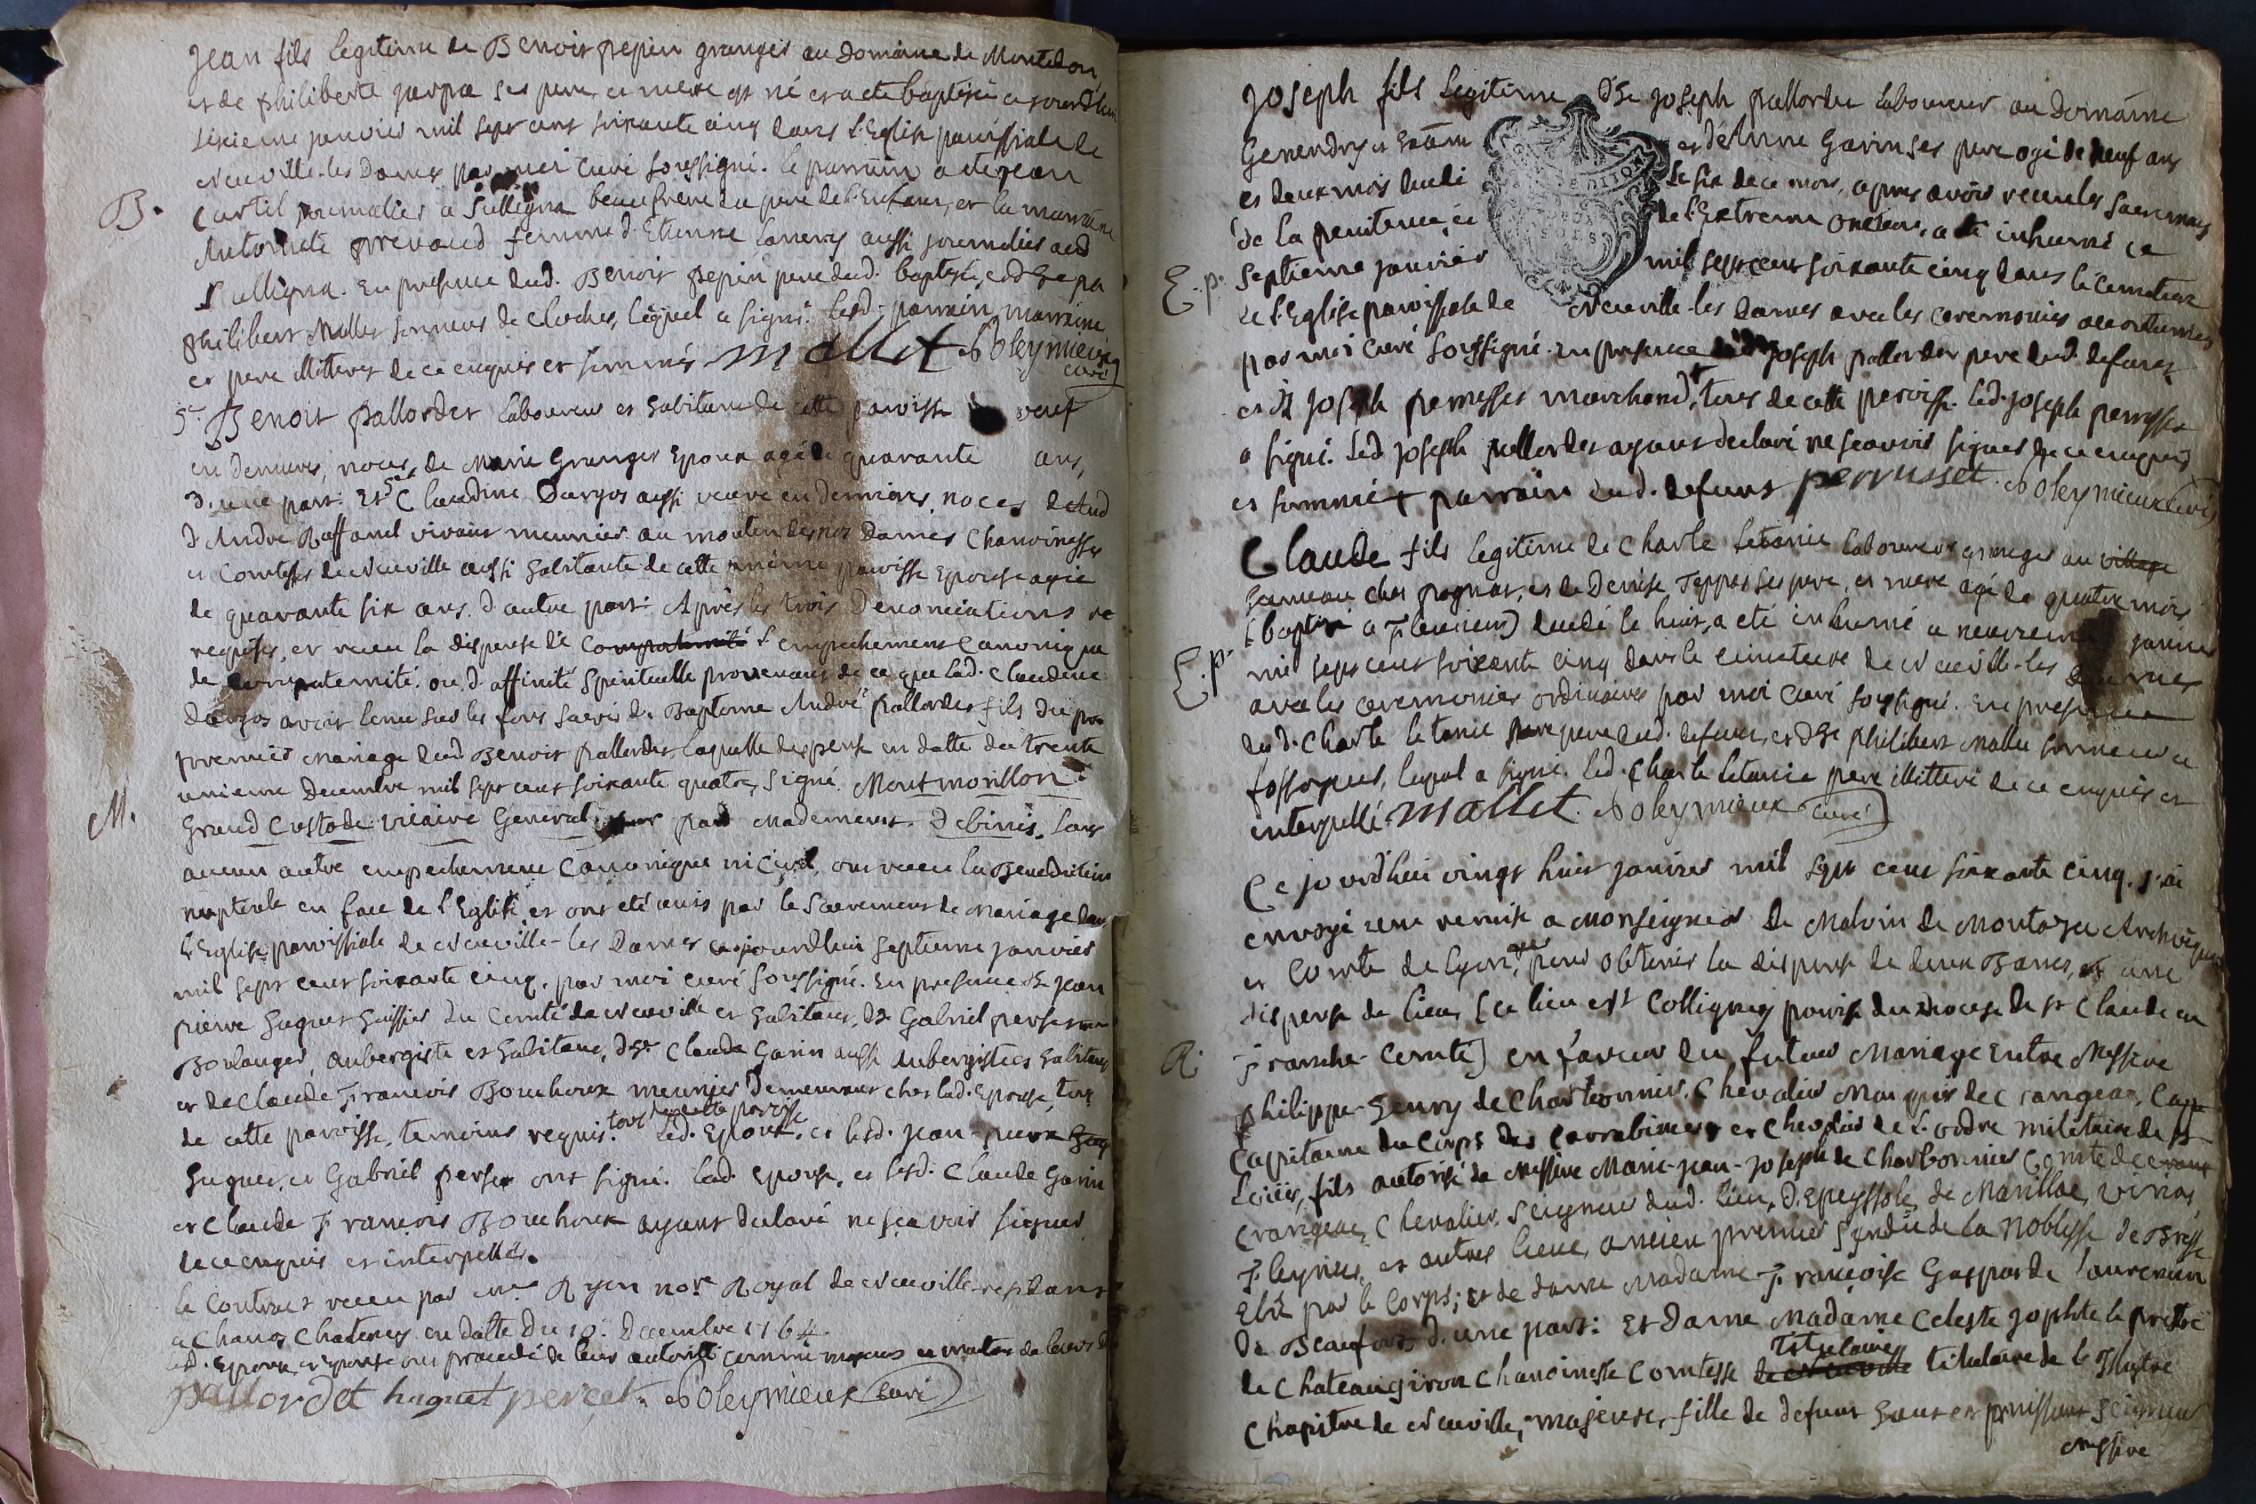 Jean fils legitime de Benoit pepin granger au Domaine de Montedon
et de philiberte jarpa ses pere et mere est né et a eté baptisé ce jourdhui
sixieme janvier mil sept cent soixante cinq dans l'Eglise paroissiale de
Neuville-les Dames par moi Curé soussigné. le parrain a eté jean
B.
Curtil journalier a Sulligna beaufrere du pere de l'Enfant, et la marraine
Antoinete prevaud femme d'Etienne lanery aussi journalier aud
Sulligna. En presence dud. Benoit pepin pere dud. baptisé, et de
philibert Mallet sonneur de cloches, lequel a signé. Lesd. parrain, marraine
et pere illitteres de ce enquis et sommés Mallet Noleymieux curé
Sr Benoit pallordet laboureur et habitant de cette paroisse veuf
en dernieres noces de Marie Granger Epoux agé de quarante ans,
d'une part: Et Claudine Dargos aussi veuve en dernieres noces
d'Andre Raffanel vivant meunier au moulin de nos Dames Chanoinesses
et Comtesses de Neuville aussi habitante de cette même paroisse Epouse agée
de quarante six ans d'autre part: Après les trois Denonciations
requises, et receu la dispense de l'empechement Canonique
de compaternité ou d'affinité spirituelle provenant de ce que lad. Claudine
dargos avoit tenu sur les fons sacrés de Bapteme André pallordet fils du
premier Mariage dud Benoit pallordet, laquelle dispense en datte du trente
unieme Decembre mil sept cent soixante quatre, signé Montmorillon
M.
Grand Custode vicaire General par Mademoment. Debinis, sans
aucun autre empechement Canonique ni Civil, ont receu la Benediction
nuptiale en face de l'Eglise, et ont eté unis par le Sacrement de Mariage dans
l'Eglise paroissiale de Neuville-les Dames ce jourdhui septieme janvier
mil sept cent soixante cinq, par moi curé soussigné. En presence de jean
pierre huguet huissier du Comté de Neuville et habitant, de Gabriel perset
Boulanger, aubergiste et habitant, de Sr Claude Garin aussi Aubergiste et habitant
et de Claude François Bouchoux meunier demeurant ches lad. Epouse, tous
de cette paroisse, temoins requis. tous de cette paroisse Led. Epoux, et lesd. jean-pierre
huguet, et Gabriel perset ont signé. Lad. Epouse, et lesd. Claude Garin
et Claude François Bouchoux ayant declaré ne sçavoir signer
de ce enquis et interpellés.
le Contract receu par me Ryon nore Royal de Neuville residant
a Chanoz Chatenay en datte du 10. Decembre 1764
led. Epoux et Epouse ont procedé de leur autorité comme majeurs et maitres de leurs
pallordet huguet perset. Noleymieux curé
Joseph fils legitime de Joseph pallordet laboureur au Domaine
Genendry et et de Anne Garin ses pere agé de neuf ans
et deux mois decedé le six de ce mois, apres avoir receu les sacremens
de la penitence, et de l'Extreme onction, a eté inhumé ce
E.p.
septieme janvier mil sept cent soixante cinq dans le cimetiere
de l'Eglise paroissiale de Neuville-les Dames avec les ceremonies accoutumées
par moi Curé soussigné. en presence Joseph pallordet pere dud. defunt
et de Joseph perrusset marchand, tous de cette paroisse. Led. Joseph perrusset
a signé. Led. Joseph pallordet ayant declaré ne sçavoir signer de ce enquis
et sommé + parrain dud. defunt perrusset. Noleymieux curé
Claude fils legitime de Charle Letanie laboureur granger au village
hameau ches pognat, et de Denise Teppes ses pere, et mere agé de quatre mois
(baptisé a Fleurieux) decedé le huit, a eté inhumé ce neuvieme janvier
E.p.
mil sept cent soixante cinq dans le cimetiere de Neuville-les Dames
avec les ceremonies ordinaires par moi Curé soussigné. En presence
dud. Charle letanie pere dud. defunt, et de philibert Mallet sonneur et
fossoyeur, lequel a signé. led. Charle Letanie pere illitteré de ce enquis et
interpellé. Mallet. Noleymieux curé
Ce jourdhui vingt huit janvier mil sept cent soixante cinq. j'ai
envoyé une remise a Monseigneur de Malvin de Montazet Archevêque
et Comte de Lyon, pour obtenir la dispense de deux Bancs, et une
dispense de lieu, (ce lieu est Colligny paroisse du Diocese de st Claude en
R.
Franche-Comté) en faveur du futur Mariage entre Messire
philippe-henry de Charbonnier. Chevalier Marquis de Crangeac,
Capitaine du Corps des Carrabiniers et Chevalier de l'ordre militaire de st
Loüis, fils autorisé de Messire Marie-Jean-Joseph de Charbonnier Comte de
Crangeac, Chevalier, Seigneur dud. lieu, d'Epeyssole, de Marillac, Viriat,
Fleyriat, et autres lieux, ancien premier Syndic de la Noblesse de Bresse
Elû par le Corps; et de dame Madame Françoise Gasparde laurencin
De Beaufort d'une part: Et dame Madame Celeste Josephte le prestre
de Chateaugiron Chanoinesse Comtesse de Neuville Titulaire titulaire de l'Illustre
Chapitre de Neuville, majeure, fille de defunt haut et puissant Seigneur
Messire